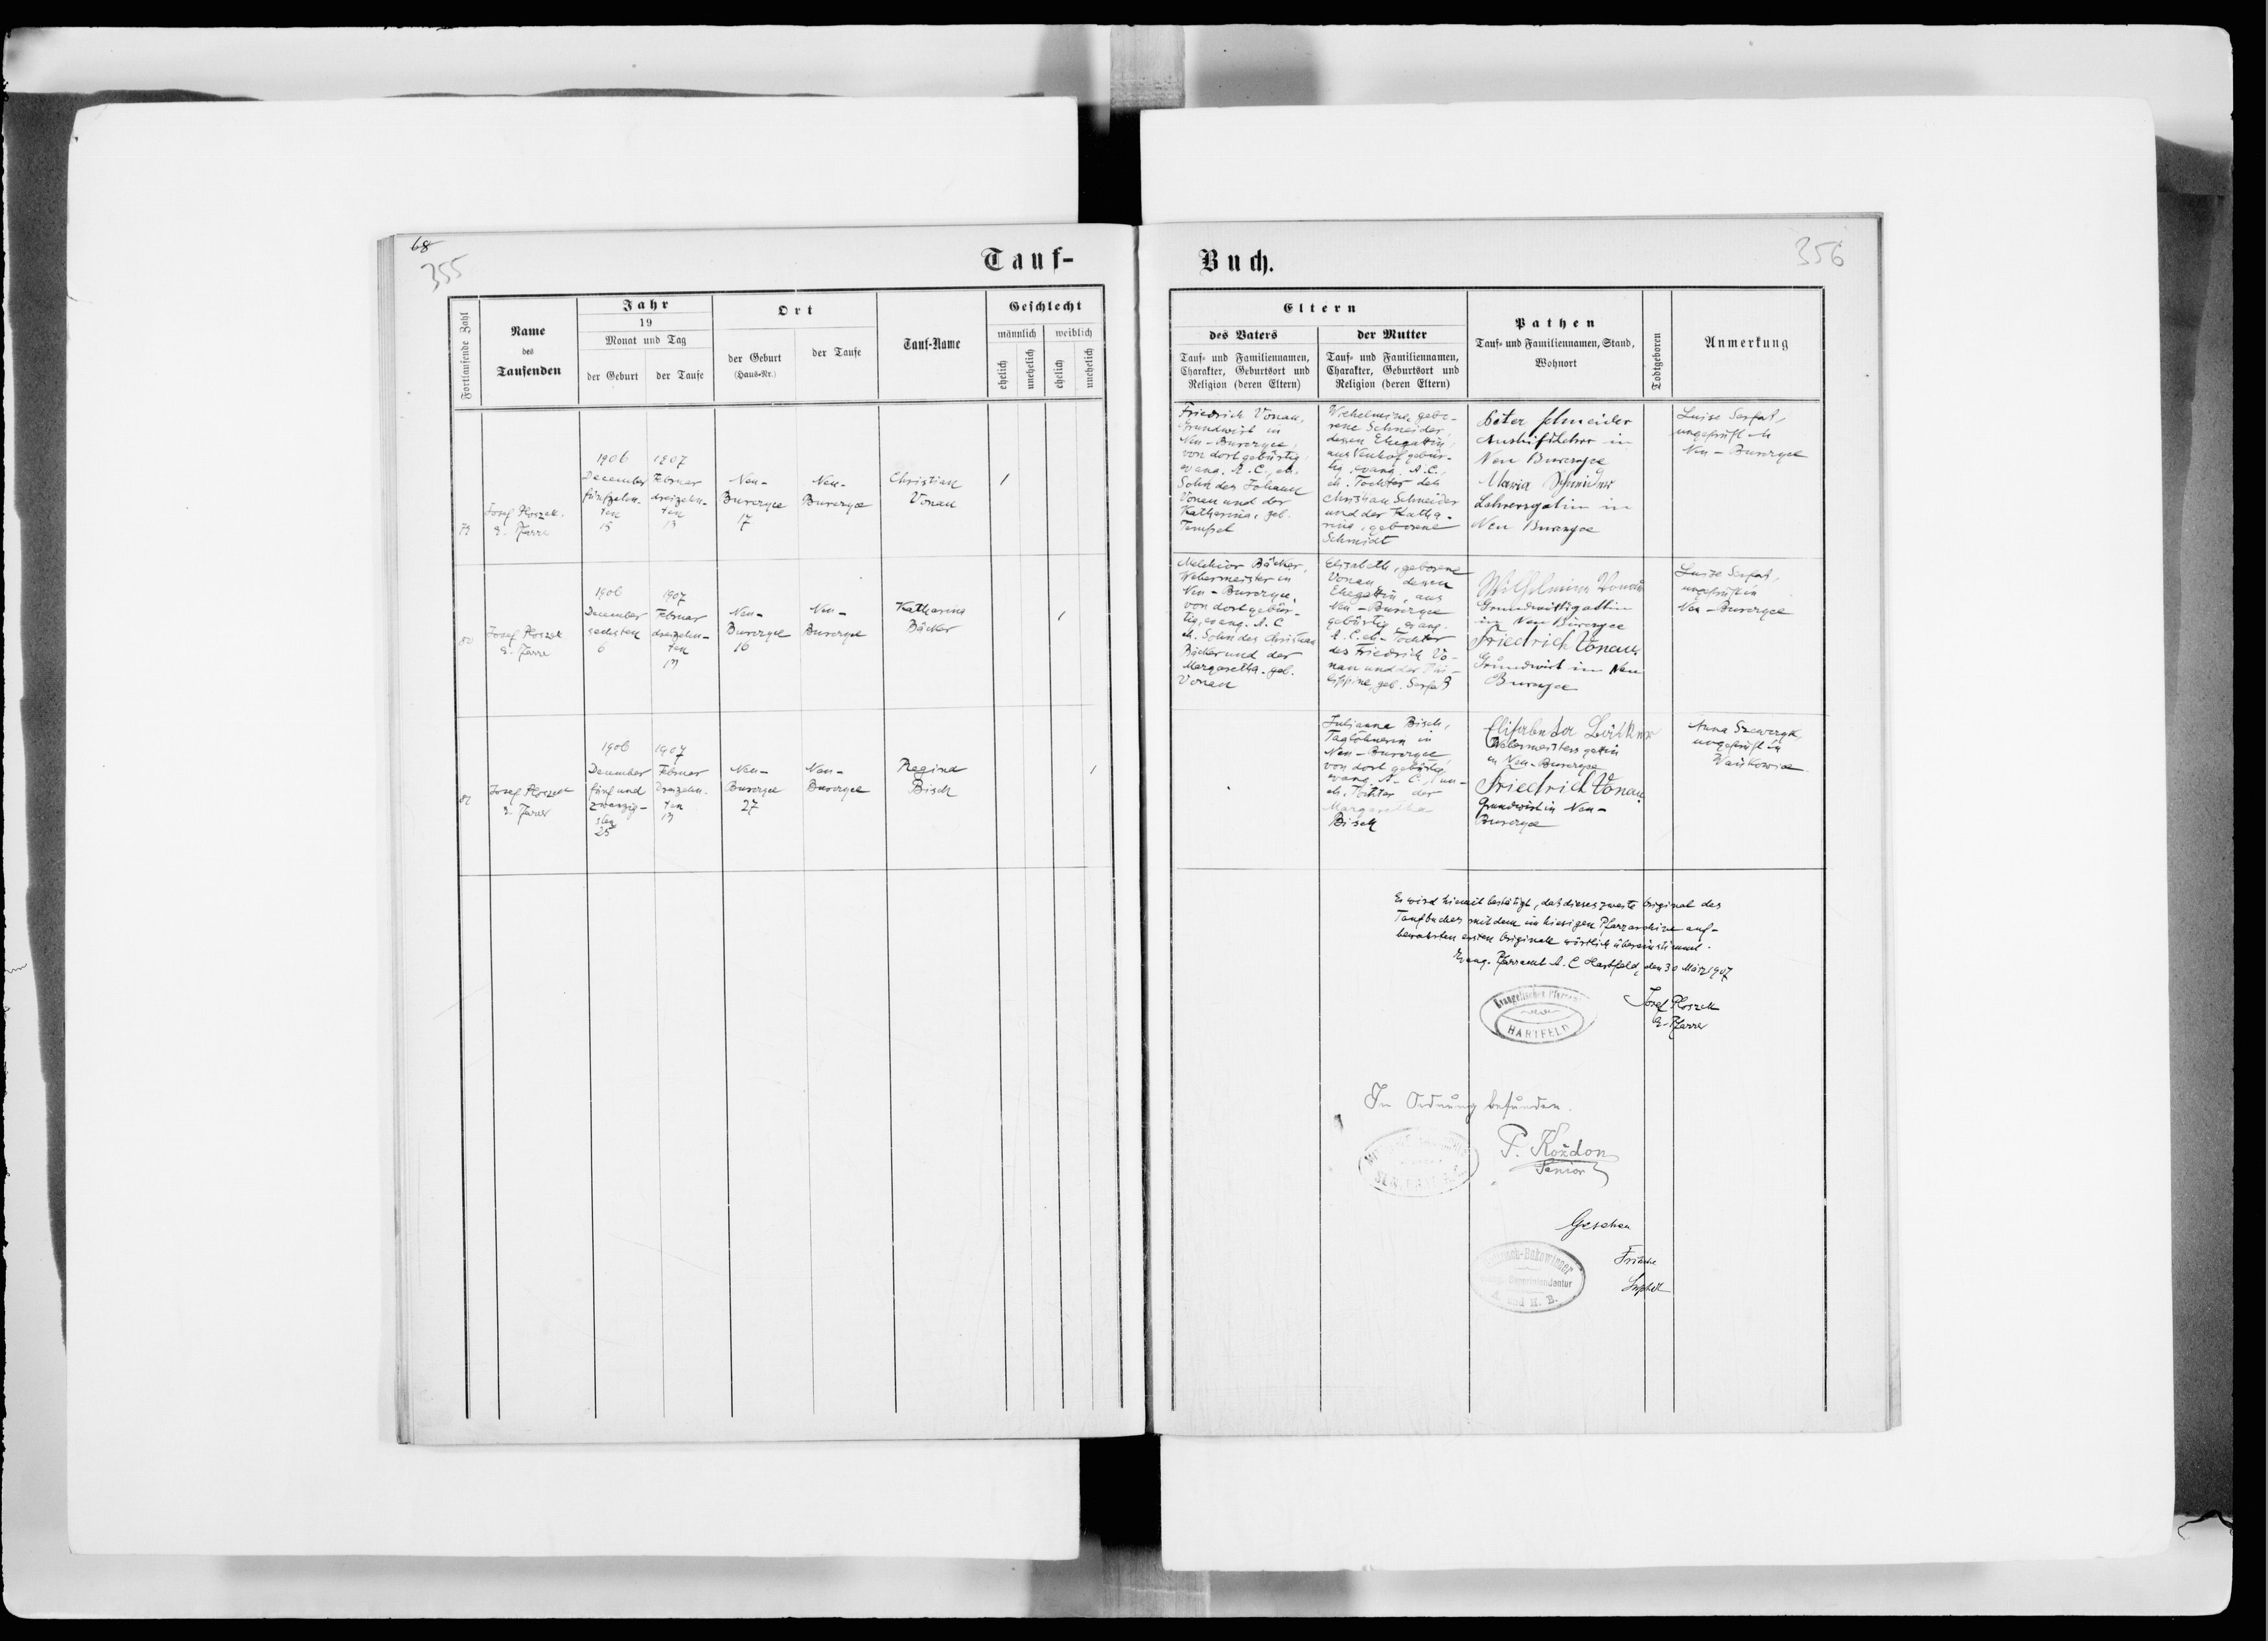 68
355
Tauf-
Fortlaufende Zahl
Name
des
Taufenden
Jahr
19
Monat und Tag
der Geburt
der Taufe
Ort
der Geburt
(Haus-Nr.)
der Taufe
Tauf-Name
Geschlecht
männlich
weiblich
ehelich
unehelich
ehelich
unehelich
79
Josef Ploszek
E. Pfarrer
1906
December
fünfzehn-
ten
15
1907
Februar
dreizehn-
ten
13
Neu-
Burczyce
17
Neu-
Burczyce
Christian
Vonau
1
80
Josef Ploszek
E. Pfarrer
1906
December
sechsten
6
1907
Februar
dreizehn-
ten
13
Neu-
Burczyce
16
Neu-
Burczyce
Katharina
Bäcker
1
81
Josef Ploszek
E. Pfarrer
1906
December
fünfund
zwanzig-
sten
25
1907
Februar
dreizehn-
ten
13
Neu-
Burczyce
27
Neu-
Burczyce
Regina
Bisch
1
Buch.
356
Eltern
des Vaters
Tauf- und Familiennamen,
Charakter, Geburtsort und
Religion (deren Eltern)
der Mutter
Tauf- und Familiennamen,
Charakter, Geburtsort und
Religion (deren Eltern)
Pathen
Tauf- und Familiennamen, Stand,
Wohnort
Todtgeboren
Anmerkung
Friedrich Vonau,
Grundwirt in
Neu-Burczyce,
von dort gebürtig
evang. A. C., eh.
Sohn des Johann
Vonau und der
Katharina, geb.
Wilhelmine, gebo-
rene Schneider,
dessen Ehegattin,
aus Neuhof gebür-
tig, evang. A. C.,
eh. Tochter des
Christian Schneider
und der Katha-
rina, geborene
Schmidt
Peter Schneider
Aushilfslehrer in
Neu Burczyce
Maria Schneider
Lehrersgattin in
Neu Burczyce
Luise Serfas,
ungeprüft in
Neu-Burczyce
Melchior Bäcker,
Webermeister in
Neu-Burczyce,
von dort gebür-
tig, evang. A. C
eh. Sohn des Christian
Bäcker und der
Margaretha, geb.
Vonau
Elisabeth, geborene
Vonau, dessen
Ehegattin, aus
Neu-Burczyce
gebürtig, evang.
A. C. eh. Tochter
des Friedrich Vo-
nau und der Phi-
lippine, geb. Serfas
Wilhelmine Vonau
Grundwirtsgattin
in Neu Burczyce
Friedrich Vonau
Grundwirt in Neu
Burczyce
Luise Serfas,
ungeprüft in
Neu-Burczyce
Julianna Bisch,
Taglöhnerin in
Neu-Burczyce
von dort gebürtig,
evang. A. C., un-
eh. Tochter der
Margaretha
Bisch
Elisabetha Bäcker
Webermeistersgattin
in Neu-Burczyce
Friedrich Vonau
Grundwirt in Neu-
Burczyce
Anna Szewczyk,
ungeprüft in
Es wird hiemit bestätigt, daß dieses zweite Original des
Taufbuches mit dem im hiesigen Pfarrarchive auf-
bewahrten ersten Originale wörtlich übereinstimmt.
Evang. Pfarramt A. C. Hartfeld, den 30 März 1907
Evangelisches Pfarramt
HARTFELD
Josef Ploszek
E. Pfarrer
In Ordnung befunden.
P. Koždon
Senior
Gesehen
Fritsche
Suptdt
Superintendentur
A. und H. B.